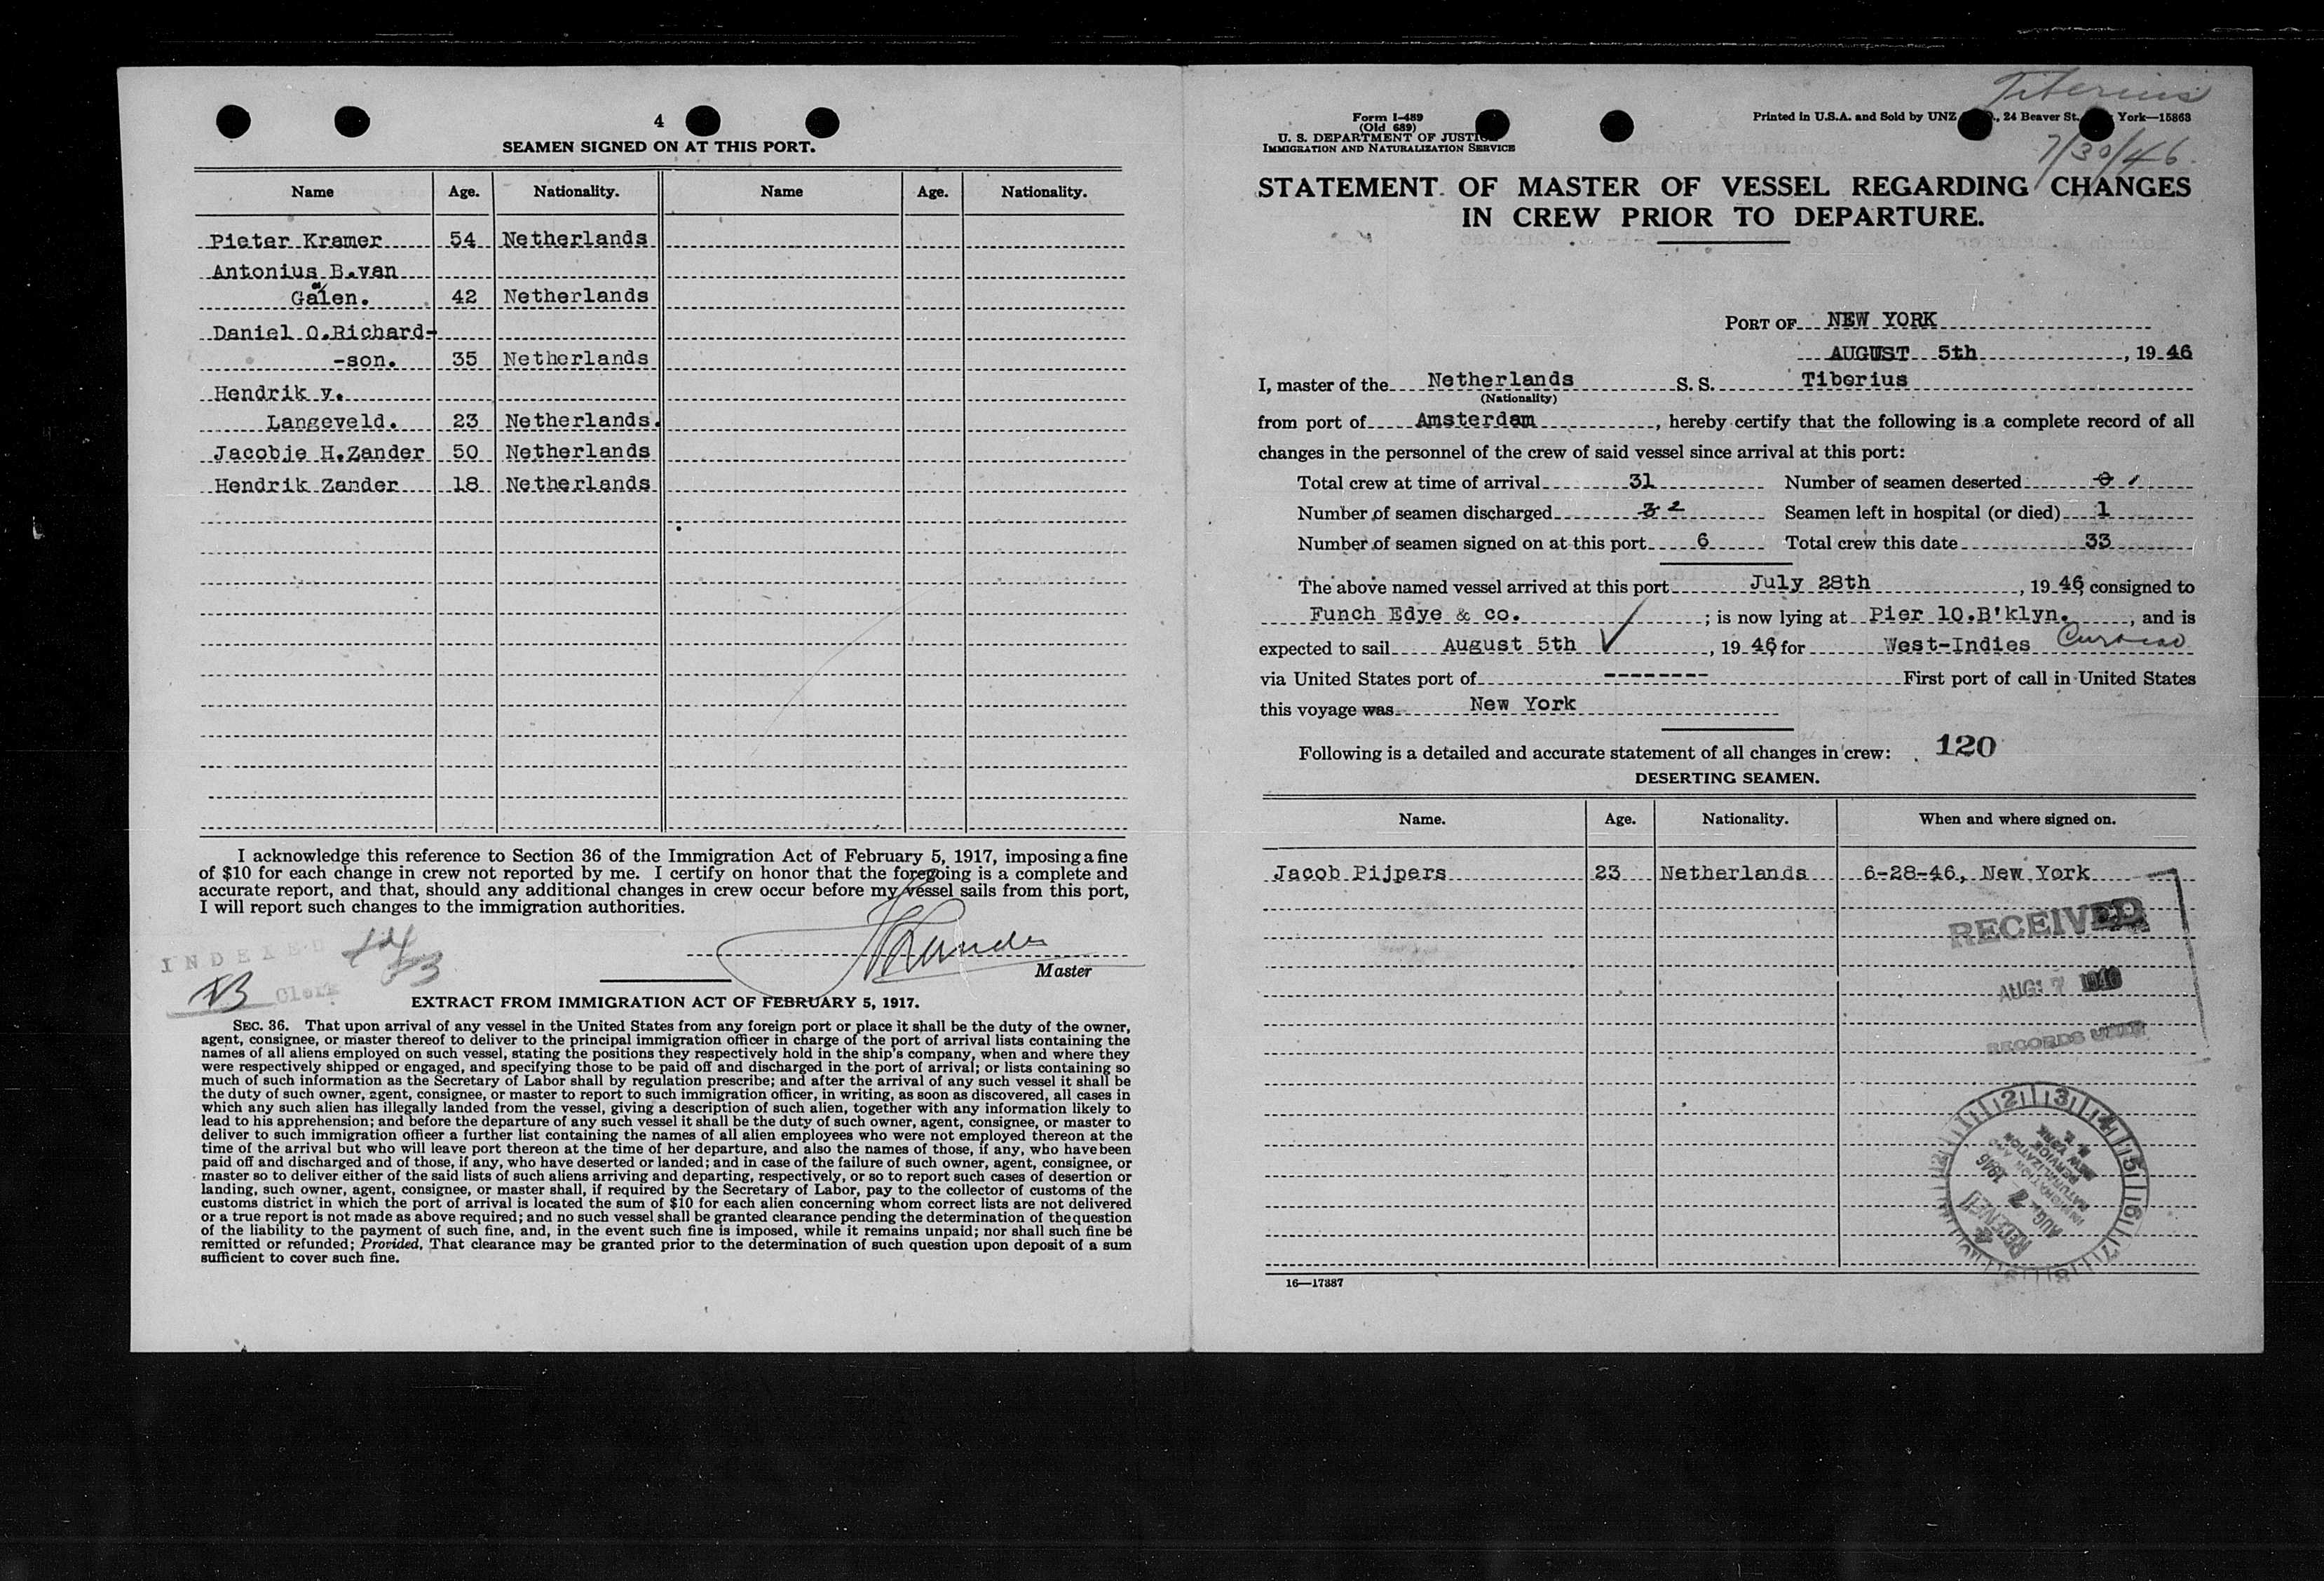 4
SEAMEN SIGNED ON AT THIS PORT.
Name Age. Nationality. Name Age. Nationality.
Pieter Kramer 54 Netherlands
Antonius B.van
Galen. 42 Netherlands
Daniel O.Richard-
-son. 35 Netherlands
Hendrik v.
Langeveld. 23 Netherlands.
Jacobje H.Zander 50 Netherlands
Hendrik Zander 18 Netherlands
I acknowledge this reference to Section 36 of the Immigration Act of February 5, 1917, imposing a fine
of $10 for each change in crew not reported by me. I certify on honor that the foregoing is a complete and
accurate report, and that, should any additional changes in crew occur before my vessel sails from this port,
I will report such changes to the immigration authorities.
INDEXED
Clerk
Master
EXTRACT FROM IMMIGRATION ACT OF FEBRUARY 5, 1917.
SEC. 36. That upon arrival of any vessel in the United States from any foreign port or place it shall be the duty of the owner,
agent, consignee, or master thereof to deliver to the principal immigration officer in charge of the port of arrival lists containing the
names of all aliens employed on such vessel, stating the positions they respectively hold in the ship's company, when and where they
were respectively shipped or engaged, and specifying those to be paid off and discharged in the port of arrival; or lists containing so
much of such information as the Secretary of Labor shall by regulation prescribe; and after the arrival of any such vessel it shall be
the duty of such owner, agent, consignee, or master to report to such immigration officer, in writing, as soon as discovered, all cases in
which any such alien has illegally landed from the vessel, giving a description of such alien, together with any information likely to
lead to his apprehension; and before the departure of any such vessel it shall be the duty of such owner, agent, consignee, or master to
deliver to such immigration officer a further list containing the names of all alien employees who were not employed thereon at the
time of the arrival but who will leave port thereon at the time of her departure, and also the names of those, if any, who have been
paid off and discharged and of those, if any, who have deserted or landed; and in case of the failure of such owner, agent, consignee, or
master so to deliver either of the said lists of such aliens arriving and departing, respectively, or so to report such cases of desertion or
landing, such owner, agent, consignee, or master shall, if required by the Secretary of Labor, pay to the collector of customs of the
customs district in which the port of arrival is located the sum of $10 for each alien concerning whom correct lists are not delivered
or a true report is not made as above required; and no such vessel shall be granted clearance pending the determination of the question
of the liability to the payment of such fine, and, in the event such fine is imposed, while it remains unpaid; nor shall such fine be
remitted or refunded; Provided, That clearance may be granted prior to the determination of such question upon deposit of a sum
sufficient to cover such fine.
Tiberius
7/30/46
Form I-489
(Old 689)
U. S. DEPARTMENT OF JUSTICE
IMMIGRATION AND NATURALIZATION SERVICE
Printed in U.S.A. and Sold by UNZ 24 Beaver St. York—15863
STATEMENT OF MASTER OF VESSEL REGARDING CHANGES
IN CREW PRIOR TO DEPARTURE.
PORT OF NEW YORK
AUGUST 5th, 19 46
I, master of the Netherlands S. S. Tiberius
(Nationality)
from port of Amsterdam, hereby certify that the following is a complete record of all
changes in the personnel of the crew of said vessel since arrival at this port:
Total crew at time of arrival 31 Number of seamen deserted 0 1
Number of seamen discharged 3 2 Seamen left in hospital (or died) 1
Number of seamen signed on at this port 6 Total crew this date 33
The above named vessel arrived at this port July 28th, 19 46, consigned to
Funch Edye & co. ; is now lying at Pier 10.B'klyn., and is
expected to sail August 5th, 19 46, for West-Indies Curacao
via United States port of -------- First port of call in United States
this voyage was New York
Following is a detailed and accurate statement of all changes in crew: 120
DESERTING SEAMEN.
Name. Age. Nationality. When and where signed on.
Jacob Pijpers 23 Netherlands 6-28-46, New York
RECEIVED
AUG 7 1946
RECORDS UNIT
RECEIVED
AUG 7 1946
IMMIGRATION AND
NATURALIZATION
SERVICE
NEW YORK
16—17887